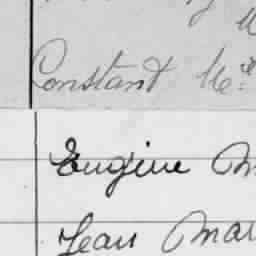 Constant M.el
Eugène M
Jean Mar